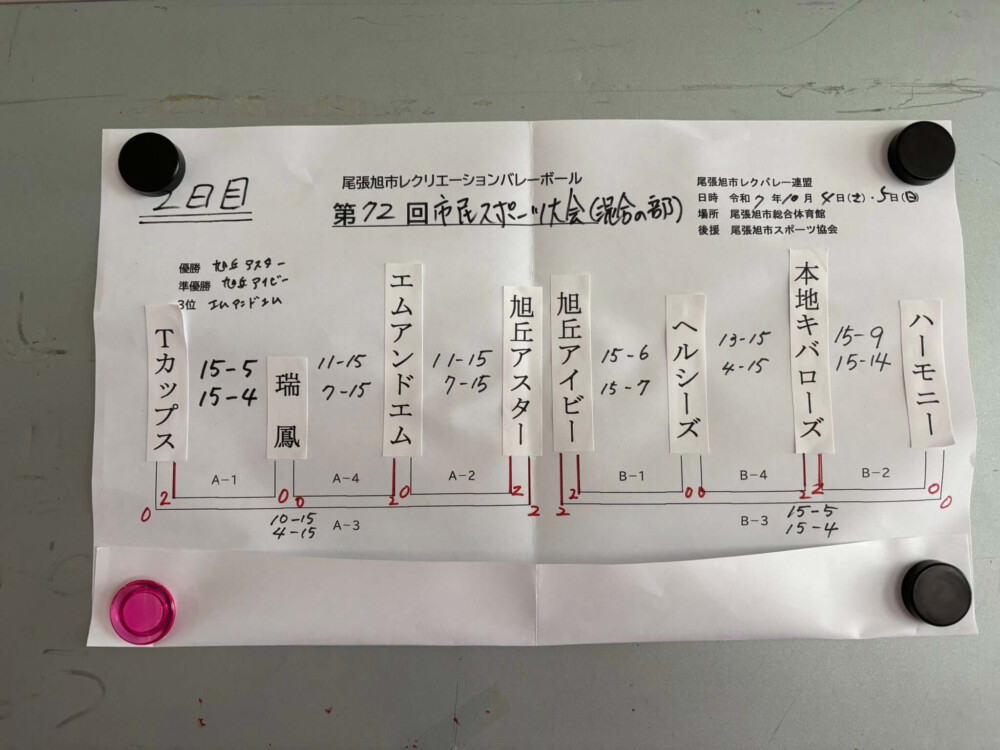 2日目
尾張旭市レクリエーションバレーボール
第72回市民スポーツ大会(混合の部)
尾張旭市レクバレー連盟
日時 令和7年10月4日(土)・5日(日)
場所 尾張旭市総合体育館
後援 尾張旭市スポーツ協会
優勝 旭丘アスター
準優勝 旭丘アイビー
3位 エムアンドエム
Tカップス
15-5
15-4
瑞鳳
11-15
7-15
エムアンドエム
11-15
7-15
旭丘アスター
旭丘アイビー
15-6
15-7
ヘルシーズ
13-15
4-15
本地キバローズ
15-9
15-14
ハーモニー
0 2 A-1 0 0 A-4 2 0 A-2 2 2
2 2 B-1 0 0 B-4 2 2 B-2 0 0
10-15
4-15
A-3
B-3
15-5
15-4